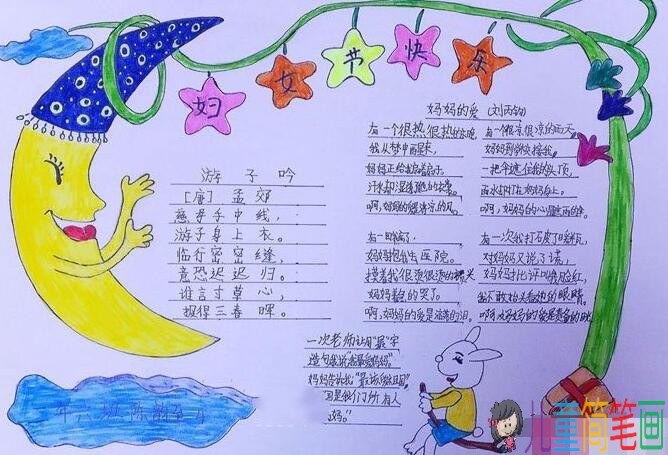 妇女节快乐
游子吟
[唐] 孟郊
慈母手中线，
游子身上衣。
临行密密缝，
意恐迟迟归。
谁言寸草心，
报得三春晖。
妈妈的爱
有一个很热很热的夜晚
我从梦中醒来，
妈妈正给我扇着扇子，
汗水却湿透了她的衣裳。
啊，妈妈的爱是清凉的风。
有一个很凉很凉的雨天，
妈妈到学校接我，
一把伞遮住我的头顶，
雨水却打在妈妈身上。
啊，妈妈的心是遮雨的伞。
有一回我病了，
妈妈抱我去医院。
摸着我很烫很烫的额头
妈妈着急的哭了。
啊，妈妈的爱是滴落的泪。
有一次我打破了暖瓶，
对妈妈又说了谎，
妈妈的批评叫我脸红，
我不敢抬头看她的眼睛。
一次老师让用"最"字
造句我说"我最爱妈妈"。
妈妈告诉我"最该爱的是祖国
因是我们所有人
的妈。"
儿童简笔画